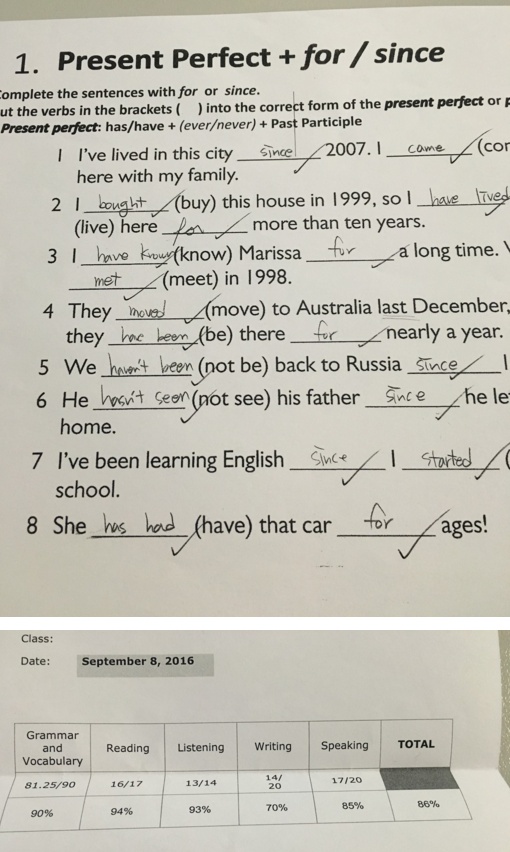 1. Present Perfect + for / since
Complete the sentences with for or since.
ut the verbs in the brackets ( ) into the correct form of the present perfect or p
Present perfect: has/have + (ever/never) + Past Participle
1 I've lived in this city since 2007. I came (cor
here with my family.
2 I bought (buy) this house in 1999, so I have lived
(live) here for more than ten years.
3 I have know (know) Marissa for a long time. V
met (meet) in 1998.
4 They moved (move) to Australia last December,
they have been (be) there for nearly a year.
5 We haven't been (not be) back to Russia since I
6 He hasn't seen (not see) his father since he le
home.
7 I've been learning English since I started (
school.
8 She has had (have) that car for ages!
Class:
Date: September 8, 2016
Grammar and Vocabulary Reading Listening Writing Speaking TOTAL
81.25/90 16/17 13/14 14/20 17/20
90% 94% 93% 70% 85% 86%